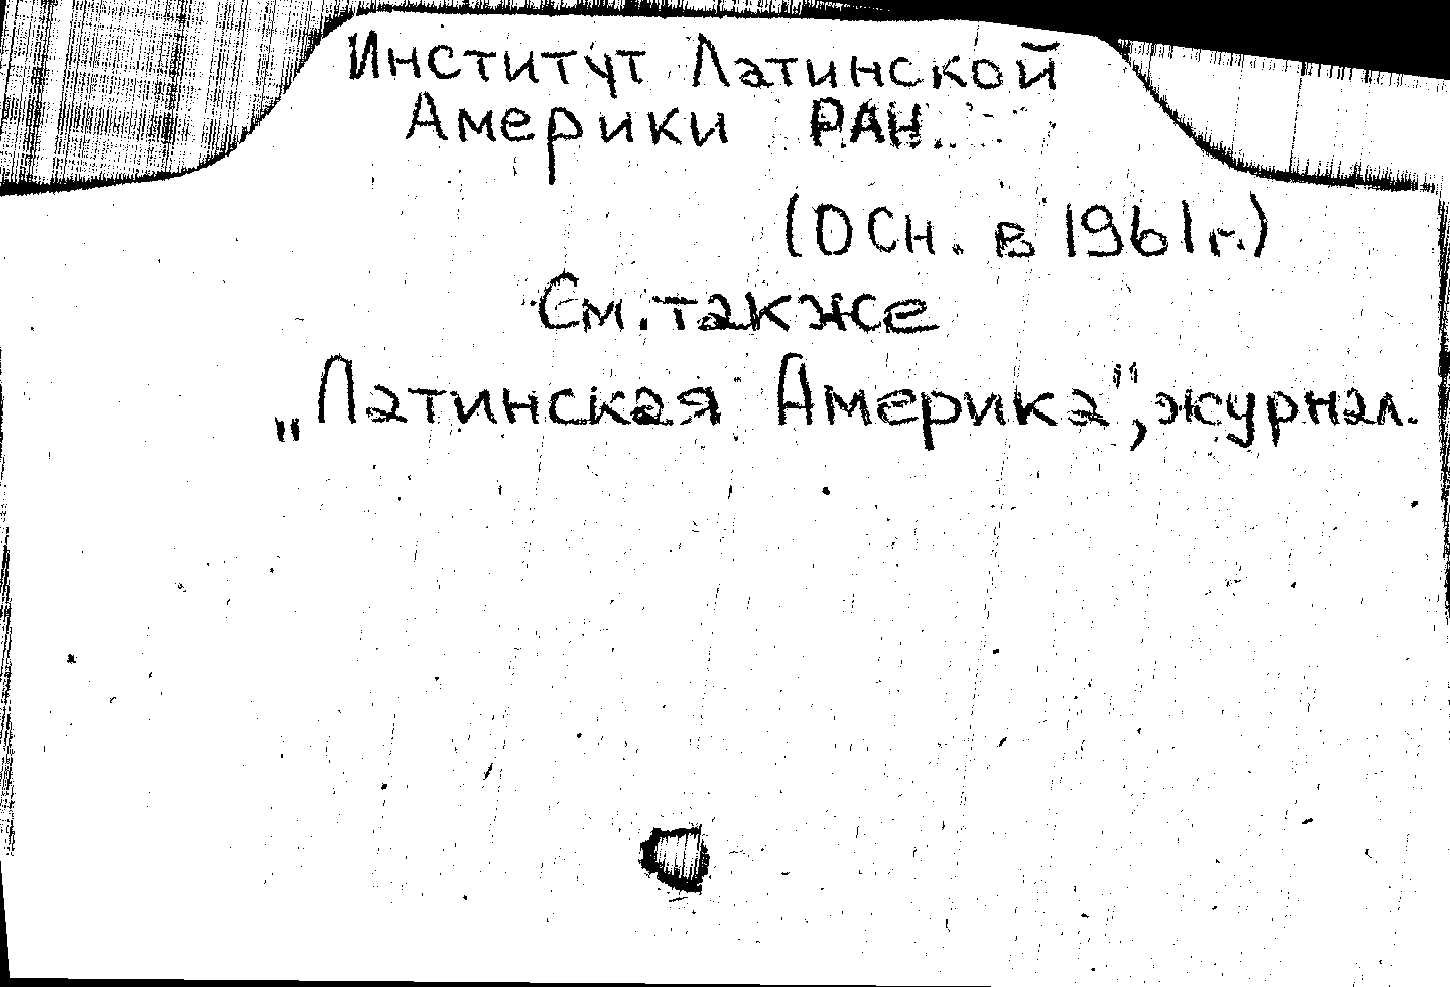 Институт Латинской
Америки РАН.
(Осн. в 1961г.)
См. также
„Латинская Америка", журнал.